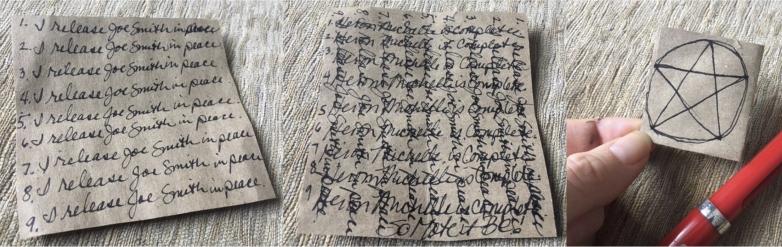 1. I release Joe Smith in peace
2. I release Joe Smith in peace
3. I release Joe Smith in peace
4. I release Joe Smith in peace
5. I release Joe Smith in peace.
6. I release Joe Smith in peace.
7. I release Joe Smith in peace
8. I release Joe Smith in peace
9. I release Joe Smith in peace.
1. Heron Michelle is complete
2. Heron Michelle is Complete
3. Heron Michelle is Complete
4. Heron Michelle is Complete
5. Heron Michelle is Complete
6. Heron Michelle is Complete.
7. Heron Michelle is Complete
8. Heron Michelle is Complete
9. Heron Michelle is Complete
So Mote it Be!